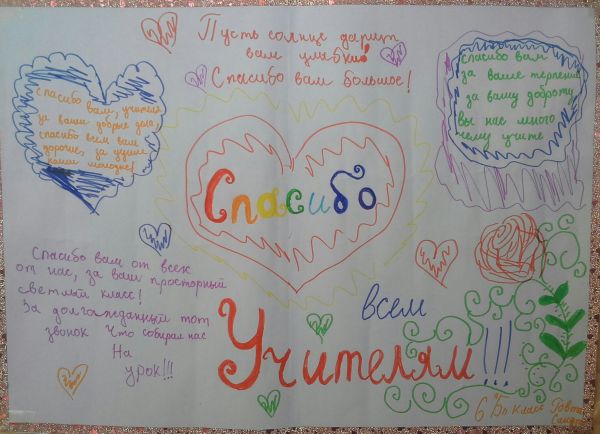 Пусть солнце дарит
вам улыбки!
Спасибо вам большое!
Спасибо вам, учителя
за ваши добрые дела,
спасибо всем вам
дорогие, за
наши
спасибо вам
за ваше терпение
за вашу доброту
Вы нас много
чему учите
Спасибо
Спасибо вам от всех
от нас, за ваш просторный
светлый класс!
За долгожданный тот
звонок что собирал нас
На
урок!!!
всем
Учителям!!!
6 класс